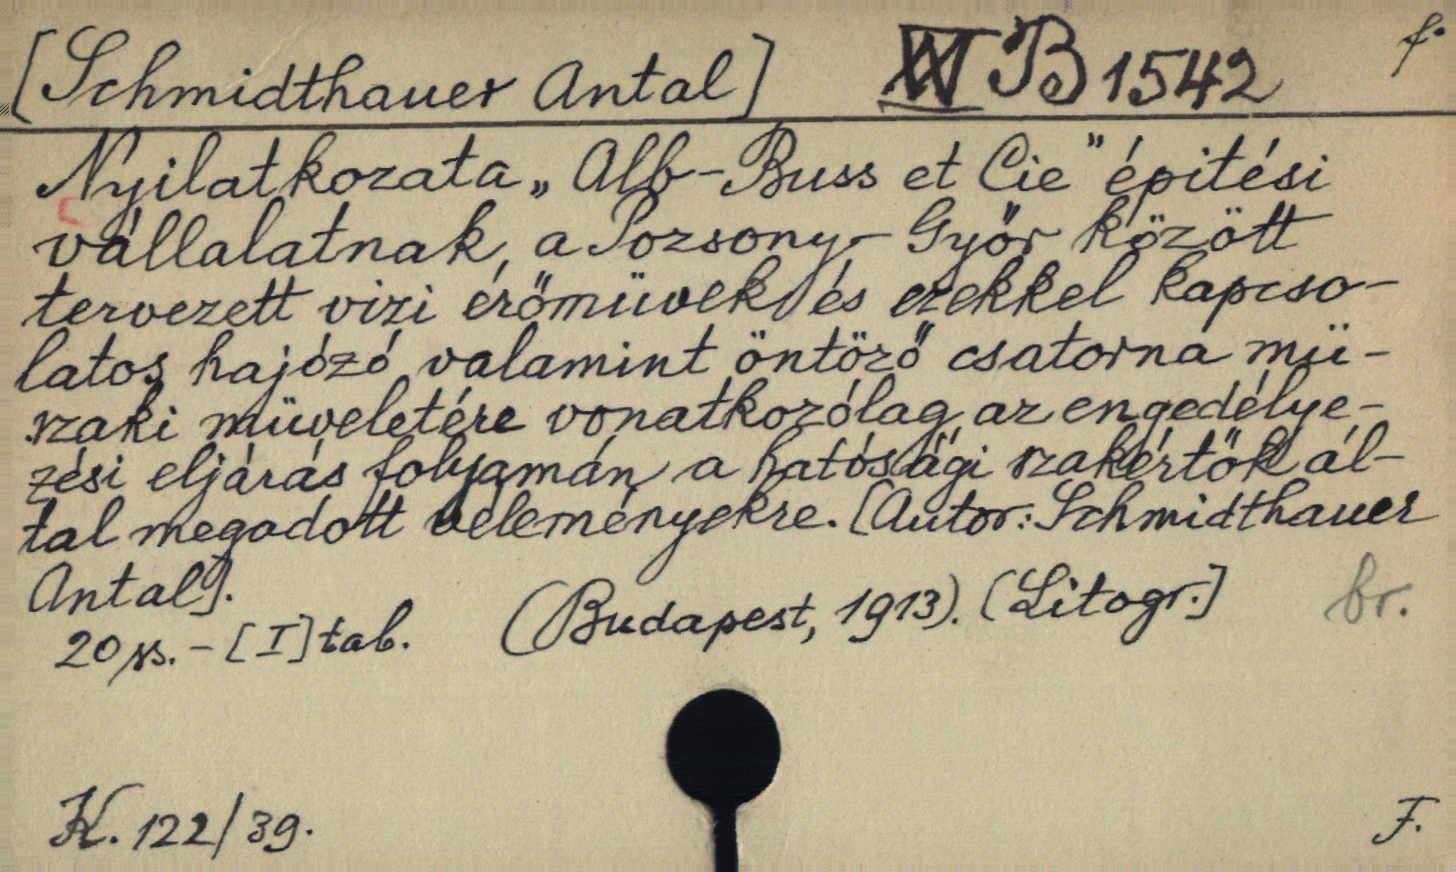 [Schmidthauer Antal] XV B 1542 f.
Nyilatkozata „Alb-Buss et Cie” épitési
vállalatnak, a Pozsony-Győr között
tervezett vizi erőmüvek és ezekkel kapcso-
latos hajózó valamint öntöző csatorna mü-
szaki müveletére vonatkozólag az engedélye-
zési eljárás folyamán a hatósági szakértők ál-
tal megadott véleményekre. [Autor: Schmidthauer
Antal].
20 ss. - [I] tab. (Budapest, 1913). (Litogr.] br.
K. 122/39. F.